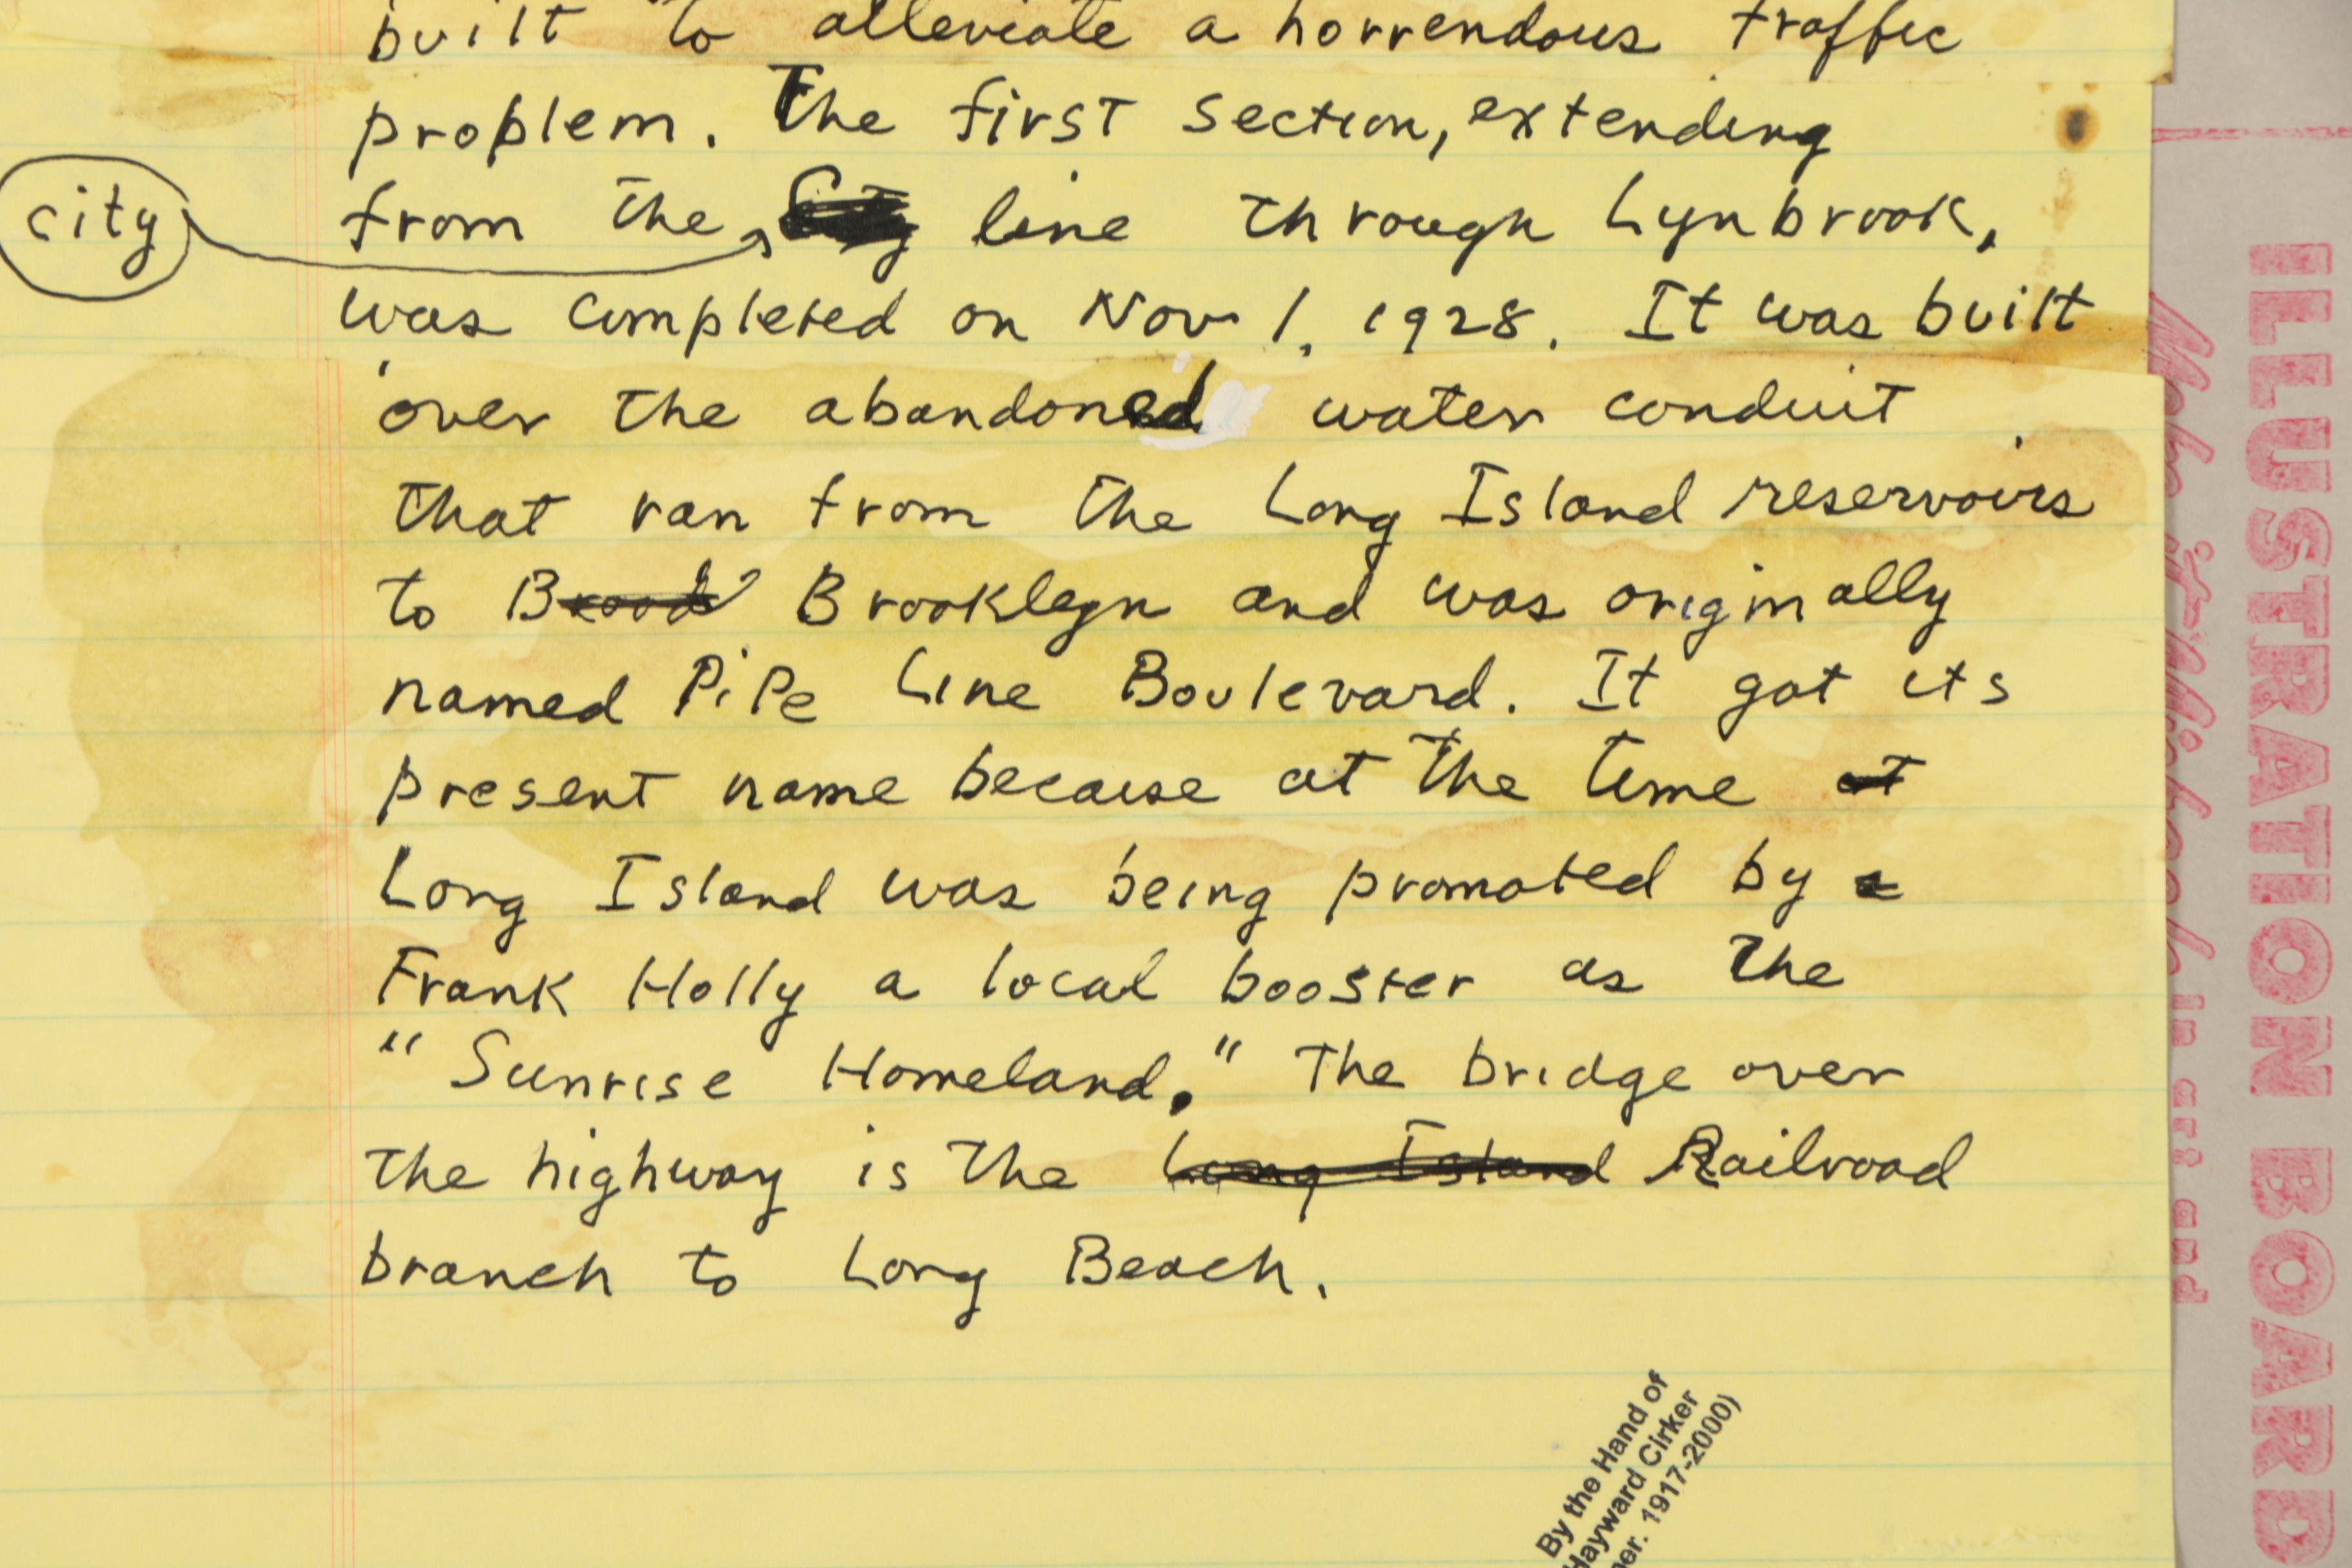 built to alleviate a horrendous traffic
problem. The first section, extending
city
from the line through Lynbrook,
was completed on Nov 1, 1928. It was built
over the abandoned water conduit
that ran from the Long Island reservoirs
to Brooklyn and was originally
named PiPe Line Boulevard. It got its
present name because at the time at
Long Island was being promoted by a
Frank Holly a local booster as the
"Sunrise Homeland." The bridge over
the highway is the Long Island Railroad
branch to Long Beach.
By the Hand of
Hayward Cirker
1917-2000)
ILLUSTRATION BOARD